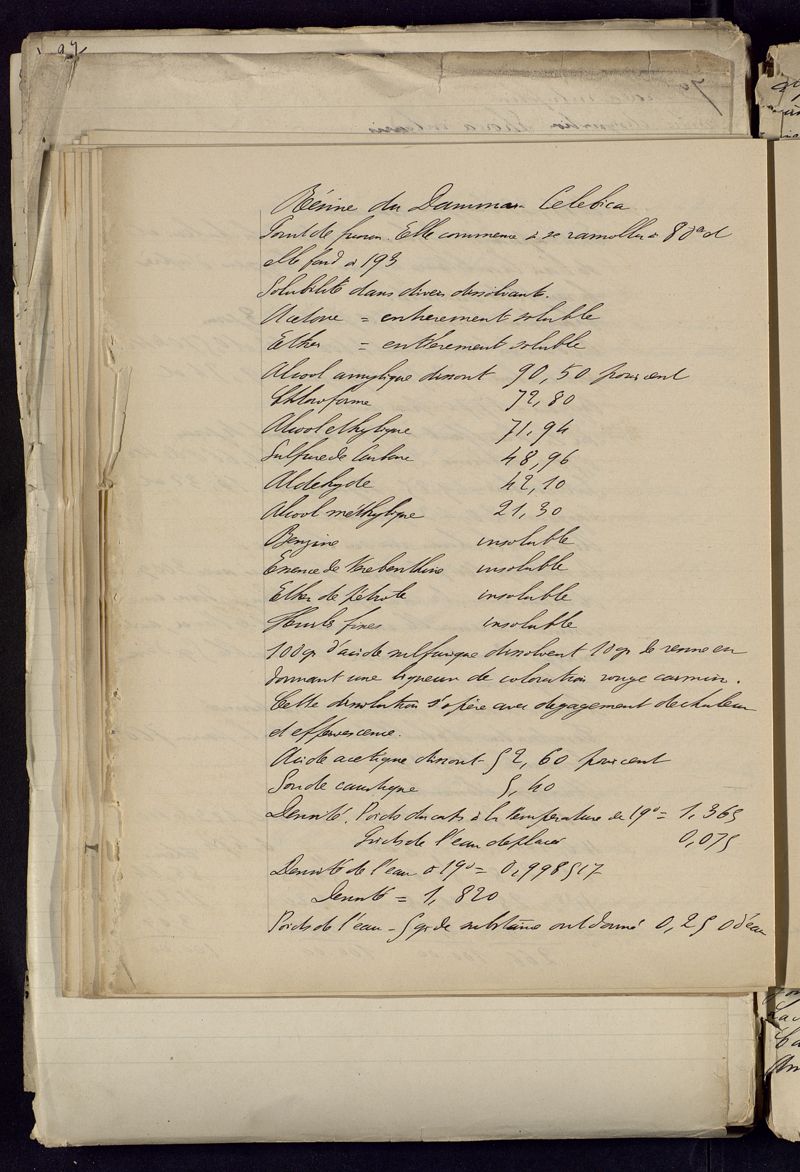 97
Résine du Dammar Celebica
Point de fusion. Elle commence à se ramollir à 80° et
elle fond à 193
Solubilité dans divers dissolvants.
Acetone = entierement soluble
Ether = entierement soluble
Alcool amylique dissout 90,50 pour cent
Chloroforme 72,80
Alcool ethylique 71,94
Sulfure de Carbone 48,96
Aldehyde 42,10
Alcool methylique 21,30
Benzine insoluble
Essence de Terebenthine insoluble
Ether de petrole insoluble
Huiles fixes insoluble
100 gr d'acide sulfurique dissolvent 10 gr de resine en
donnant une liqueur de coloration rouge carmin.
Cette dissolution s'opère avec degagement de chaleur
et effervescence.
Acide acetique dissout 52,60 pour cent
Soude caustique 5,40
Densité. Poids du corps à la temperature de 19° = 1,365
Poids de l'eau deplacée 0,075
Densité de l'eau à 19° = 0,998517
Densité = 1,820
Poids de l'eau - 5 gr de substance ont donné 0,250 d'eau